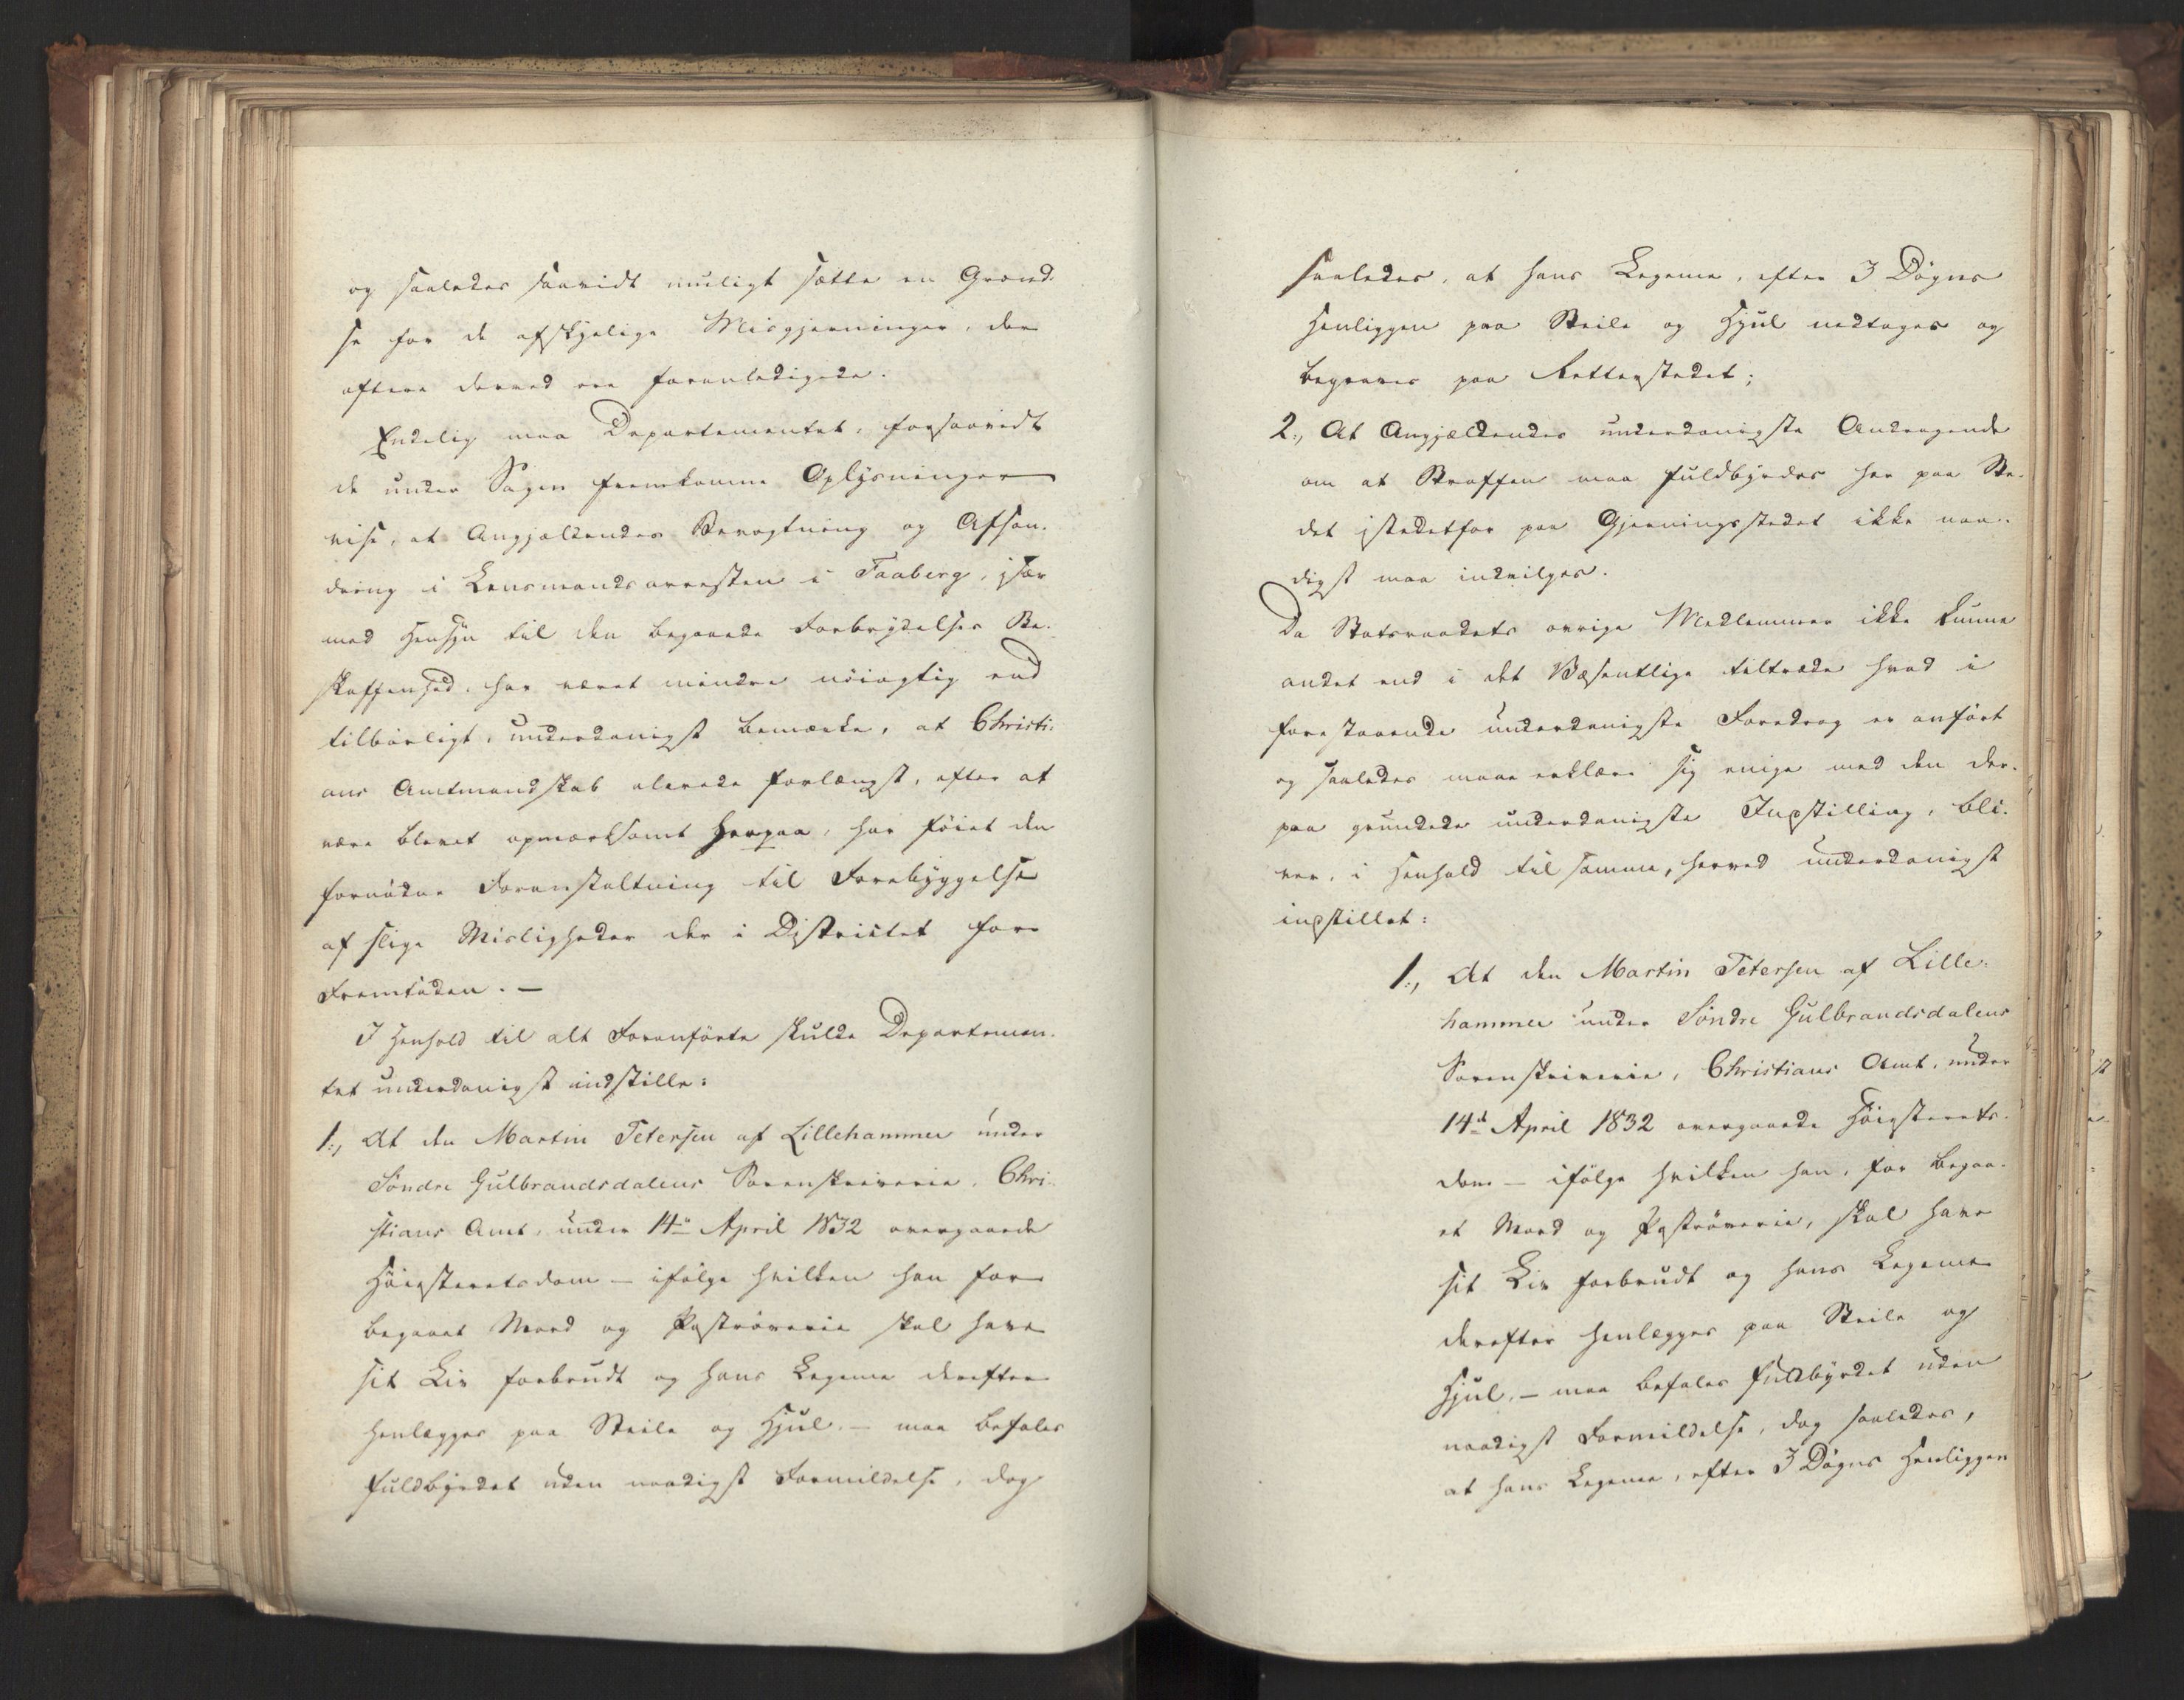 og saaledes saavidt muligt sætte en Grænd-
se for de afskyelige Misgjerninger, der
oftere derved ere foranledigede.
Endelig maa Departementet, forsaavidt
de under Sagen fremkomne Oplysninger
vise, at Angjældendes Bevogtning og Afson-
dring i Lensmandsarresten i Faaberg, især
med Hensyn til den begaaede Forbrydelses Be-
skaffenhed, har været mindre nöiagtig end
tilbörligt, underdanigst bemærke, at Christi-
ans Amtmandskab allerede forlængst, efter at
være blevet opmærksomt herpaa, har föiet den
fornödne Foranstaltning til Forebyggelse
af slige Misligheder der i Districtet for
Fremtiden. —
I Henhold til alt Foranförte skulde Departemen-
tet underdanigst indstille:
1., At den Martin Petersen af Lillehammer under
Söndre Gulbrandsdalens Sorenskriverie, Chri-
stians Amt, under 14de April 1832 overgaaede
Höiesteretsdom — ifölge hvilken han for
begaaet Mord og Poströverie skal have
sit Liv forbrudt og hans Legeme derefter
henlægges paa Steile og Hjul, — maa befales
fuldbyrdet uden naadigst Formildelse, dog
saaledes, at hans Legeme, efter 3 Dögns
Henliggen paa Steile og Hjul nedtages og
begraves paa Retterstedet;
2., At Angjældendes underdanigste Andragende
om at Straffen maa fuldbyrdes her paa Ste-
det istedetfor paa Gjerningsstedet ikke naa-
digst maa indvilges.
Da Statsraadets övrige Medlemmer ikke kunne
andet end i det Væsentlige tiltræde hvad i
forestaaende underdanigste Foredrag er anfört
og saaledes maae erklære sig enige med den der-
paa grundede underdanigste Indstilling, bli-
ver, i Henhold til samme, herved underdanigst
indstillet:
1., At den Martin Petersen af Lille-
hammer under Söndre Gulbrandsdalens
Sorenskriverie, Christians Amt, under
14de April 1832 overgaaede Höiesterets-
dom — ifölge hvilken han, for begaa-
et Mord og Poströverie, skal have
sit Liv forbrudt og hans Legeme
derefter henlægges paa Steile og
Hjul, — maa befales fuldbyrdet uden
naadigst Formildelse, dog saaledes,
at hans Legeme, efter 3 Dögns Henliggen